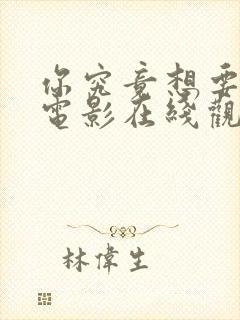 你究竟想要
電影在綫觀
林偉生